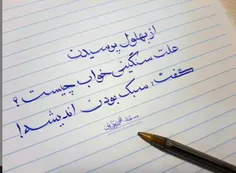 از بهلول پرسیدن
علت سنگینی خواب چیست؟
گفت: سبک بودن اندیشه!